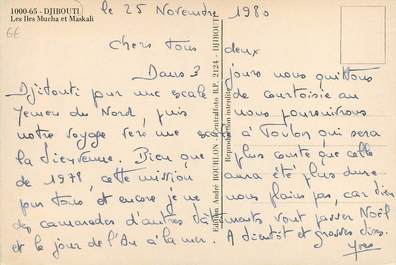 1000-65 - DJIBOUTI
Les Iles Mucha et Maskali
6€
le 25 Novembre 1980
Chers tous deux
Dans 3 jours nous quittons
Djibouti pour une escale de courtoisie au
Yemen du Nord, puis nous poursuivrons
notre voyage vers une escale à Toulon qui sera
la bienvenue. Bien que plus courte que celle
de 1978, cette mission aura été plus dure
pour tous et encore je ne nous plains pas, car bien
des camarades d'autres bâtiments vont passer Noël
et le jour de l'An à la mer. A bientôt et grosses bises.
Yves
Edition André BOURLON - Central Docks B.P. 2124 - DJIBOUTI
Reproduction interdite